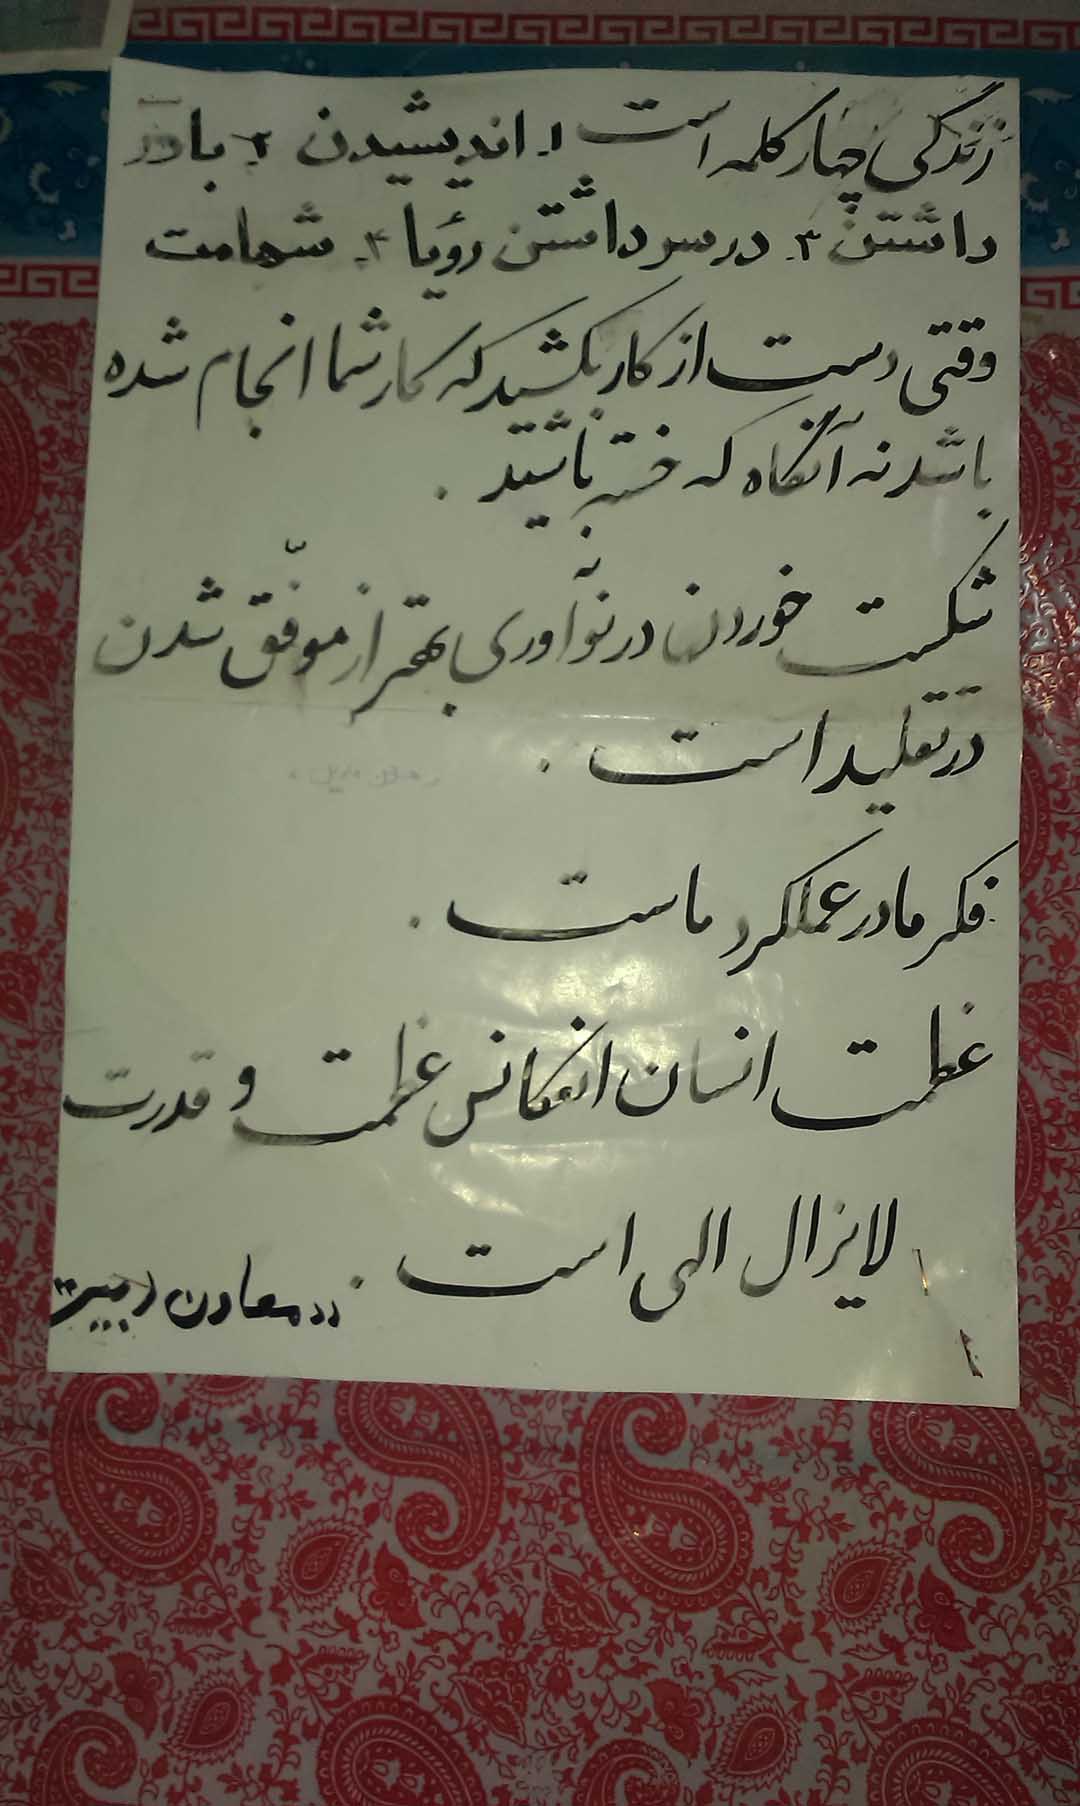 زندگی چهار کلمه است ۱. اندیشیدن ۲. باور
داشتن ۳. در سر داشتن رؤیا ۴. شهامت
وقتی دست از کار بکشید که کار شما انجام شده
باشد نه آنگاه که خسته باشید.
شکست خوردن در نوآوری بهتر از موفّق شدن
در تقلید است.
فکر ما در عملکرد ماست.
عظمت انسان انعکاس عظمت و قدرت
لایزال الهی است.
معاون